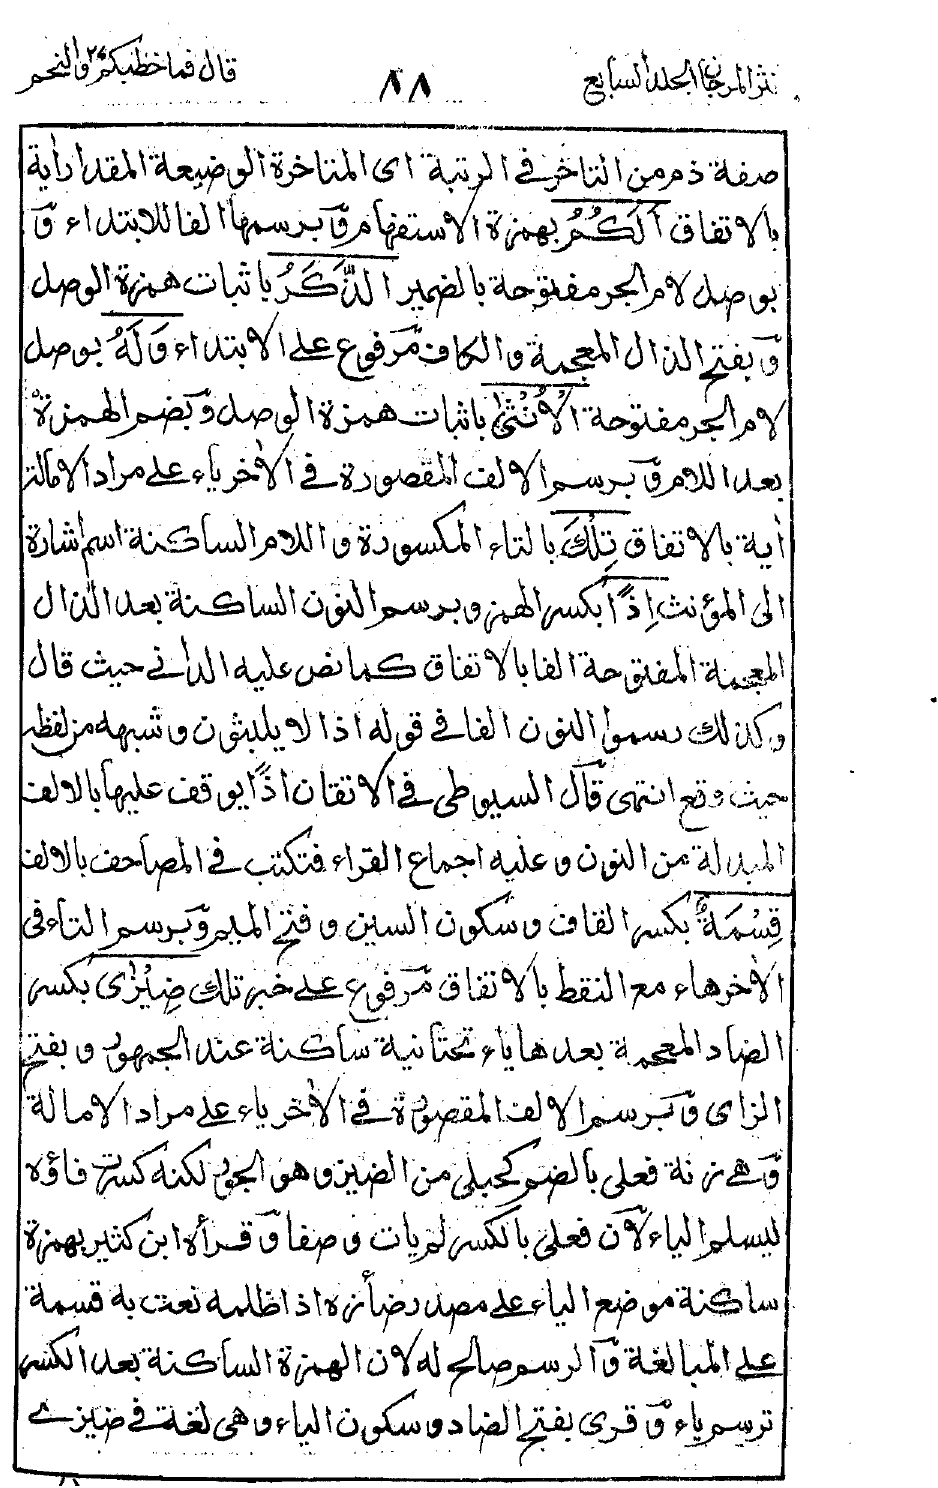 نثر المرجان الجلد السابع
٨٨
قال فما خطبكم ٢٧ والنجم
صفة ذم من التاخر في الرتبة اى المتاخرة الوضيعة المقدار اية
بالاتفاق اَلَكُمُ بهمزة الاستفهام وّبرسمها الفا للابتداء وّ
بوصل لام الجر مفتوحة بالضمير الذَّكَرُ باثبات همزة الوصل
وّ بفتح الذال المعجمة والكاف مرفوع على الابتداء وَلَهُ بوصل
لام الجر مفتوحة الْاُنْثٰى باثبات همزة الوصل وّبضم الهمزة
بعد اللام وّبرسم الالف المقصورة في الاٰخر ياء على مراد الامالة
اٰية بالاتفاق تِلْكَ بالتاء المكسورة واللام الساكنة اسم اشارة
الى المؤنث اِذًا بكسر الهمز وبرسم النون الساكنة بعد الذال
المعجمة المفتوحة الفا بالاتفاق كما نص عليه الداني حيث قال
وكذلك رسموا النون الفا في قوله اذا لا يلبثون وشبهه من لفظه
حيث وقع انتهى قال السيوطي في الاتقان اذًا يوقف عليها بالالف
المبدلة من النون وعليه اجماع القراء فتكتب في المصاحف بالالف
قِسْمَةٌ بكسر القاف وسكون السين وفتح الميم وّبرسم التاء في
الاٰخر هاء مع النقط بالاتفاق مرفوع على خبر تلك ضِيْزٰى بكسر
الضاد المعجمة بعدها ياء تحتانية ساكنة عند الجمهور وبفتح
الزاى وّبرسم الالف المقصورة في الاٰخر ياء على مراد الامالة
وّهي زنة فعلى بالضم كحبلى من الضيز وهو الجور لكنه كسرت فاؤه
ليسلم الياء لان فعلى بالكسر لم يات وصفا وّ قرأه ابن كثير بهمزة
ساكنة موضع الياء على مصدر ضأزه اذا ظلمه نعت به قسمة
على المبالغة وّالرسم صالح له لان الهمزة الساكنة بعد الكسر
ترسم ياء وّ قرى بفتح الضاد وسكون الياء وهى لغة في ضيزے